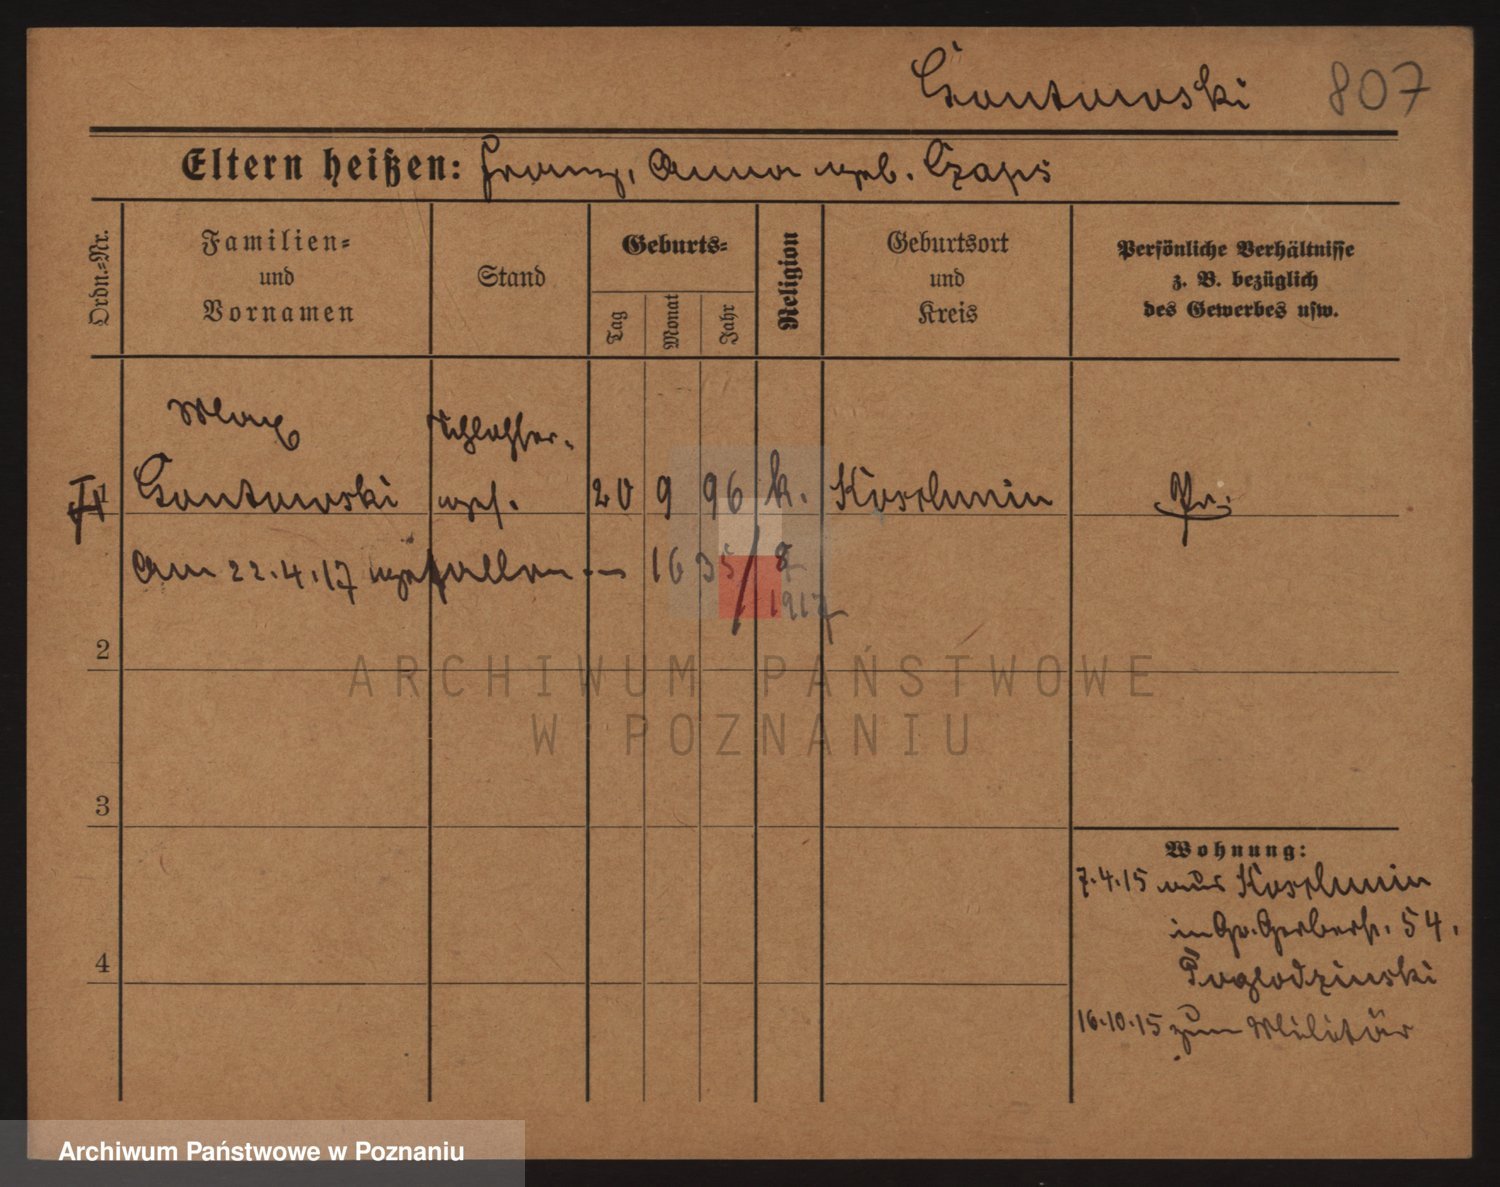 Gontowski 807
Eltern heißen: Franz, Anna geb. Czaps
Ordn.=Nr.
Familien=
und
Vornamen
Stand
Geburts=
Tag
Monat
Jahr
Religion
Geburtsort
und
Kreis
Persönliche Verhältnisse
z. B. bezüglich
des Gewerbes usw.
Max Schlosser-
1 Gontowski ges. 20 9 96 k. Koschmin Pr.
am 22.4.17 gefallen -- 1635/8
1917
2
3
4
Wohnung:
7.4.15 aus Koschmin
in Gr. Gerberstr. 54.
16.10.15 zum Militär
ARCHIWUM PAŃSTWOWE
W POZNANIU
Archiwum Państwowe w Poznaniu